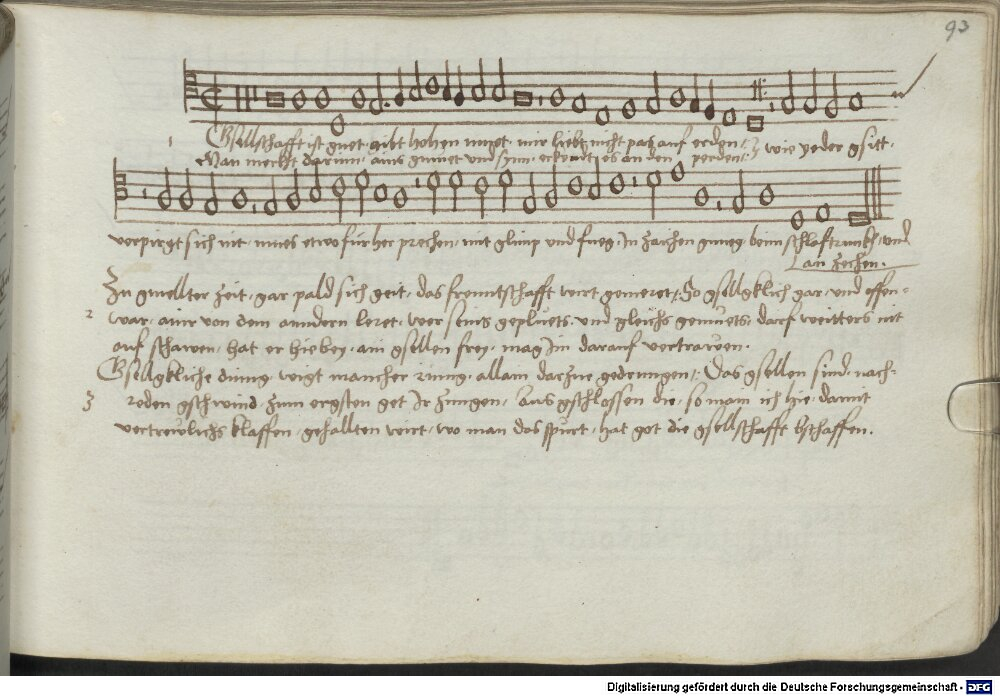 93
1 Gsellschafft ist guet, gibt hohen muet, mir liebt nicht paz auf erden :/: wie yeder gsitt,
Man merkht darinn, ains gmuet und synn, erkennt es an den perden :/:
verpirgt sich nit, mues etwo fürher prechen, mit glimp und fueg, In zaichen gnueg, beim schlaftrunkh, und
an zechen.
Zu gmellter zeit, gar pald sich geit, das freuntschafft wirt gemeret, So gsellgklich gar, und offen-
2 war, ainr von dem anndern leret, wer seins gepluets, und gleichs gemuets, darf weitters nit
auf schawen, hat er hieben, ain gsellen frey, mag In darauf vertrawen.
Gsellgkliche dinng, wigt mancher ring, allain darzue gedrungen, Das gsellen sind, nach-
3 reden gschwind, zum ergsten get Ir zungen, Aus gschlossen die, so main ich hie, damit
vertrewlichs klaffen, gehallten wirt, wo man das spürt, hat got die gsellschafft bschaffen.
Digitalisierung gefördert durch die Deutsche Forschungsgemeinschaft - DFG